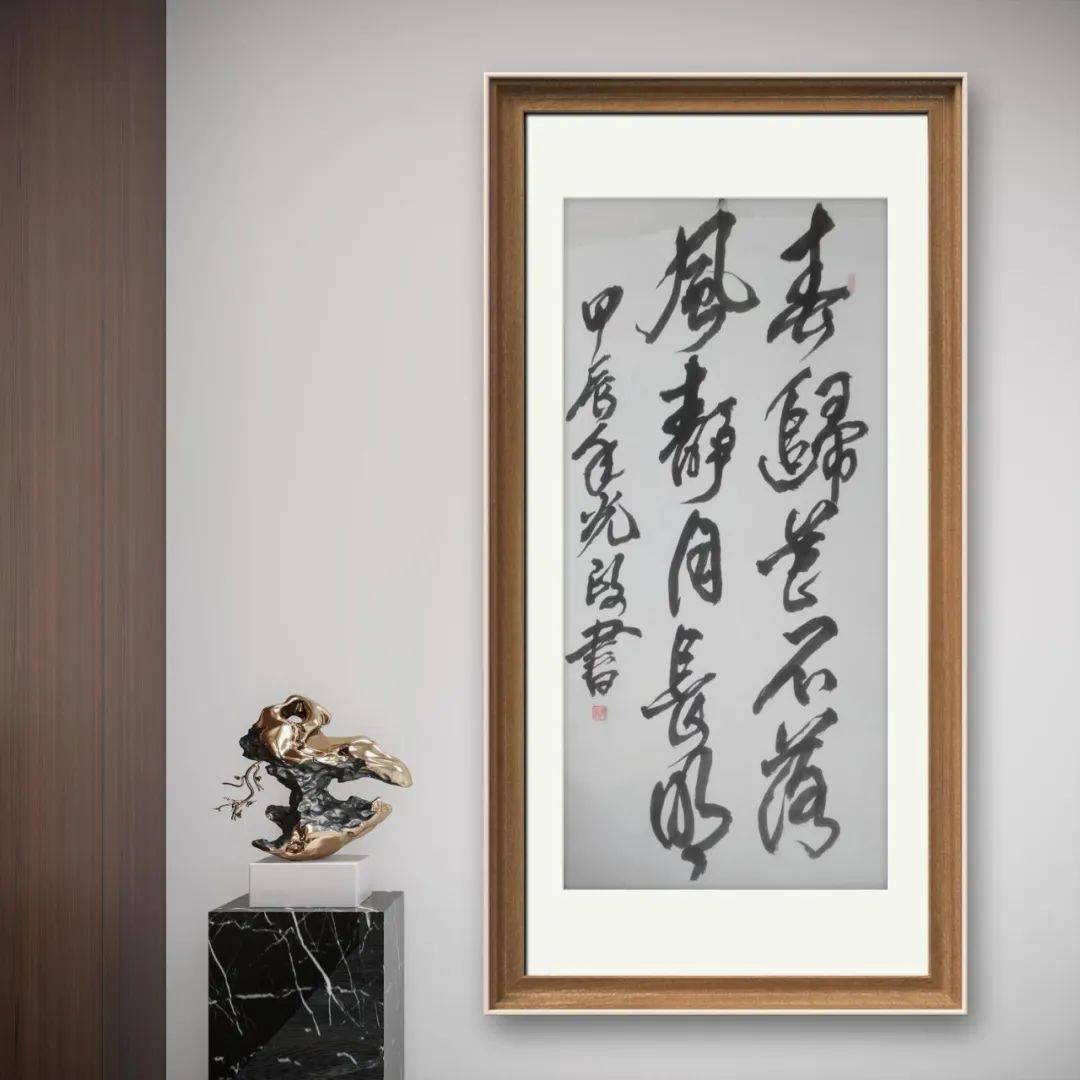 春歸花不落
風靜月長明
甲辰年光啟書